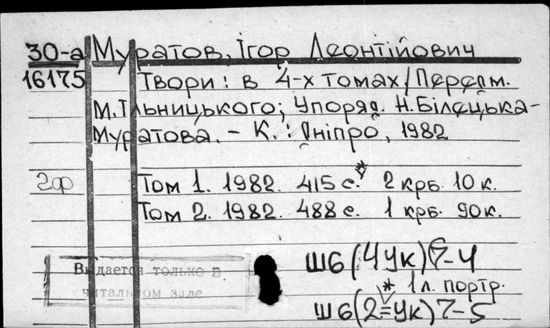 30-а Муратов, Ігор Леонтійович
16175 Твори: в 4-х томах / Передм.
М. Ільницького; Упоряд. Н. Білецька-
Муратова. - К.: Дніпро, 1982
2ф Том 1. 1982. 415 с.* 2 крб. 10 к.
Том 2. 1982. 488 с. 1 крб. 90 к.
Ш6(4Ук)7-4
Выдается только в
* 1 л. портр.
читальном зале
Ш6(2=Ук)7-5